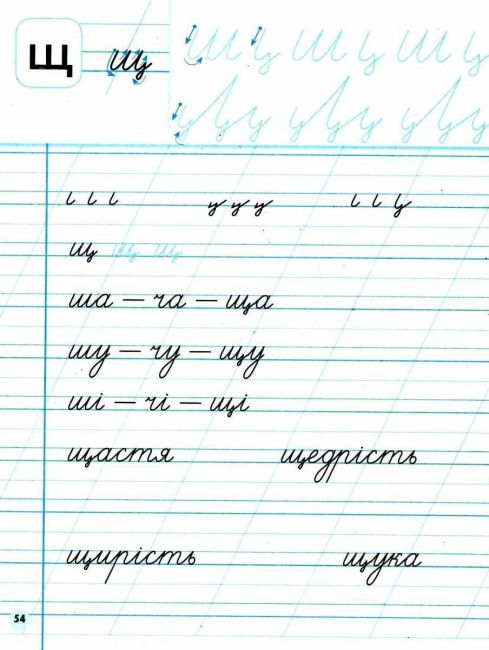 Щ щ
щ щ щ
ша – ча – ща
шу – чу – щу
ші – чі – щі
щастя щедрість
щирість щука
54